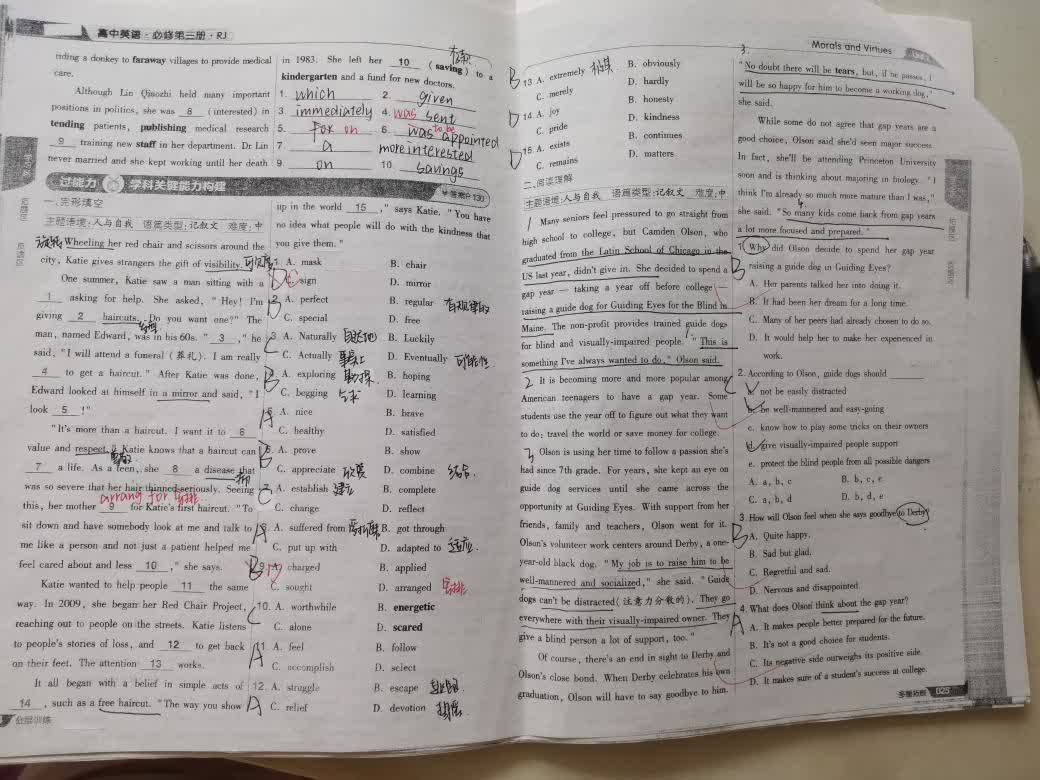 高中英语·必修第三册·RJ
riding a donkey to faraway villages to provide medical
care.
Although Lin Qiaozhi held many important
positions in politics, she was 8 (interested) in
tending patients, publishing medical research
9 training new staff in her department. Dr Lin
never married and she kept working until her death
in 1983. She left her 10 (saving) to a
kindergarten and a fund for new doctors.
1. which 2. given
3 immediately 4. was sent
5. For on 6. was to be appointed
7. a more interested
9. on 10. savings
过能力 学科关键能力构建
答案P130
一、完形填空
主题语境:人与自我 语篇类型:记叙文 难度:中
旋转 Wheeling her red chair and scissors around the
city, Katie gives strangers the gift of visibility.
One summer, Katie saw a man sitting with a
1 asking for help. She asked, "Hey! I'm
giving 2 haircuts. Do you want one?" The
man, named Edward, was in his 60s. " 3 ," he
said, "I will attend a funeral (葬礼). I am really
4 to get a haircut." After Katie was done,
Edward looked at himself in a mirror and said, "I
look 5 !"
"It's more than a haircut. I want it to 6
value and respect." Katie knows that a haircut can
7 a life. As a teen, she 8 a disease that
was so severe that her hair thinned seriously. Seeing
arrang for 安排
this, her mother 9 for Katie's first haircut. "To
sit down and have somebody look at me and talk to
me like a person and not just a patient helped me
feel cared about and less 10 ," she says.
Katie wanted to help people 11 the same
way. In 2009, she began her Red Chair Project,
reaching out to people on the streets. Katie listens
to people's stories of loss, and 12 to get back
on their feet. The attention 13 works.
It all began with a belief in simple acts of
14 , such as a free haircut. "The way you show
up in the world 15 ," says Katie. "You have
no idea what people will do with the kindness that
you give them."
1 A. mask B. chair
C. sign D. mirror
2 A. perfect B. regular
C. special D. free
3 A. Naturally B. Luckily
C. Actually 事实上 D. Eventually
4 A. exploring B. hoping
C. begging D. learning
5 A. nice B. brave
C. healthy D. satisfied
6 A. prove B. show
C. appreciate 欣赏 D. combine 结合
7 A. establish 建立 B. complete
C. change D. reflect
8 A. suffered from B. got through
C. put up with D. adapted to 适应
9 A. charged B. applied
C. sought D. arranged 安排
10. A. worthwhile B. energetic
C. alone D. scared
11 A. feel B. follow
C. accomplish D. select
12. A. struggle B. escape
C. relief D. devotion
Morals and Virtues
13 A. extremely B. obviously
C. merely D. hardly
14 A. joy B. honesty
C. pride D. kindness
15 A. exists B. continues
C. remains D. matters
二、阅读理解
主题语境:人与自我 语篇类型:记叙文 难度:中
1 Many seniors feel pressured to go straight from
high school to college, but Camden Olson, who
graduated from the Latin School of Chicago in the
US last year, didn't give in. She decided to spend a
gap year — taking a year off before college —
raising a guide dog for Guiding Eyes for the Blind in
Maine. The non-profit provides trained guide dogs
for blind and visually-impaired people. "This is
something I've always wanted to do," Olson said.
2 It is becoming more and more popular among
American teenagers to have a gap year. Some
students use the year off to figure out what they want
to do; travel the world or save money for college.
3 Olson is using her time to follow a passion she's
had since 7th grade. For years, she kept an eye on
guide dog services until she came across the
opportunity at Guiding Eyes. With support from her
friends, family and teachers, Olson went for it.
Olson's volunteer work centers around Derby, a one-
year-old black dog. "My job is to raise him to be
well-mannered and socialized," she said. "Guide
dogs can't be distracted (注意力分散的). They go
everywhere with their visually-impaired owner. They
give a blind person a lot of support, too."
Of course, there's an end in sight to Derby and
Olson's close bond. When Derby celebrates his own
graduation, Olson will have to say goodbye to him.
"No doubt there will be tears, but, if he passes, I
will be so happy for him to become a working dog,"
she said.
While some do not agree that gap years are a
good choice, Olson said she'd seen major success.
In fact, she'll be attending Princeton University
soon and is thinking about majoring in biology. "I
think I'm already so much more mature than I was,"
she said. "So many kids come back from gap years
a lot more focused and prepared."
1. Why did Olson decide to spend her gap year
raising a guide dog in Guiding Eyes?
A. Her parents talked her into doing it.
B. It had been her dream for a long time.
C. Many of her peers had already chosen to do so.
D. It would help her to make her experienced in
work.
2. According to Olson, guide dogs should
a. not be easily distracted
b. be well-mannered and easy-going
c. know how to play some tricks on their owners
d. give visually-impaired people support
e. protect the blind people from all possible dangers
A. a, b, c B. b, c, e
C. a, b, d D. b, d, e
3 How will Olson feel when she says goodbye to Derby?
A. Quite happy.
B. Sad but glad.
C. Regretful and sad.
D. Nervous and disappointed.
4. What does Olson think about the gap year?
A. It makes people better prepared for the future.
B. It's not a good choice for students.
C. Its negative side outweighs its positive side.
D. It makes sure of a student's success at college.
025